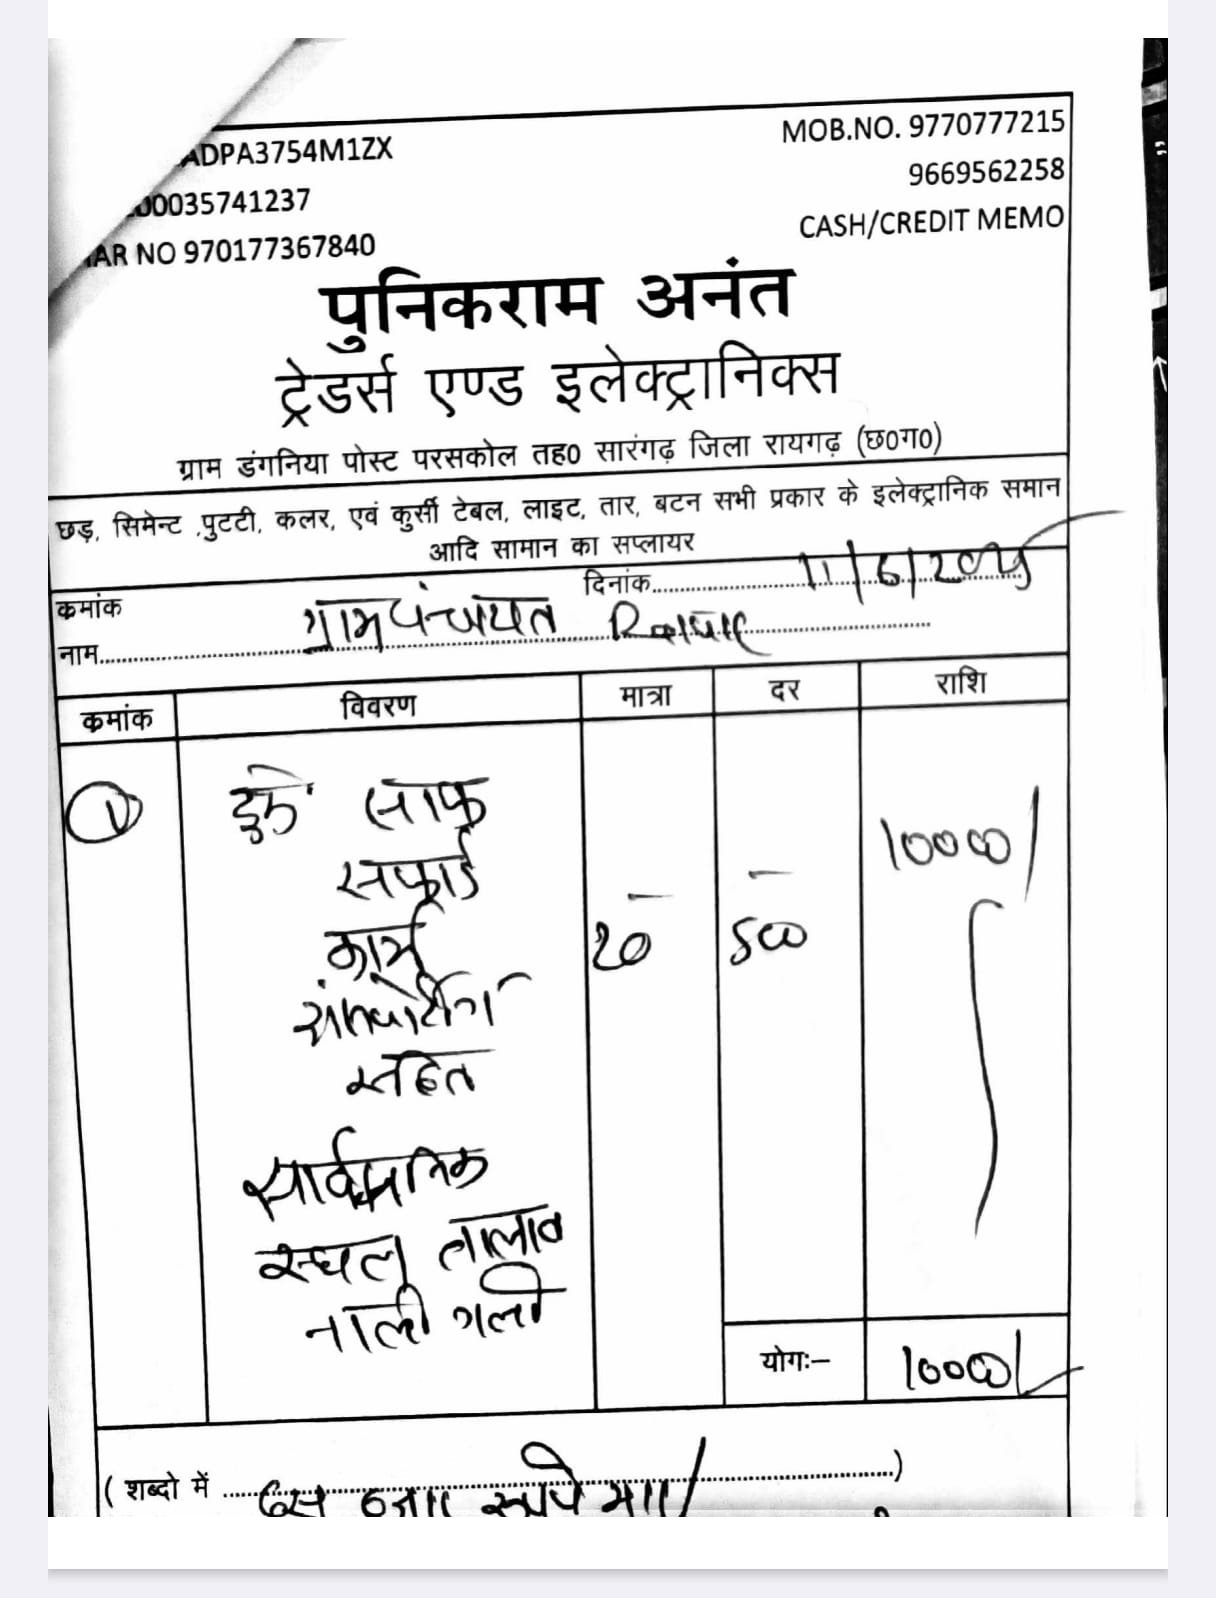 ADPA3754M1ZX
MOB.NO. 9770777215
00035741237
9669562258
AR NO 970177367840
CASH/CREDIT MEMO
पुनिकराम अनंत
ट्रेडर्स एण्ड इलेक्ट्रानिक्स
ग्राम डंगनिया पोस्ट परसकोल तह0 सारंगढ़ जिला रायगढ़ (छ0ग0)
छड़, सिमेन्ट ,पुटटी, कलर, एवं कुर्सी टेबल, लाइट, तार, बटन सभी प्रकार के इलेक्ट्रानिक समान
आदि सामान का सप्लायर
कमांक
दिनांक 11/6/2025
नाम ग्राम पंचायत
कमांक विवरण मात्रा दर राशि
1 साफ 10000/
सफाई
कार्य 20 500
सहित
सार्वजनिक
स्थल तालाब
नाली गली
योगः– 10000/
( शब्दो में दस हजार रूपये मात्र/ )